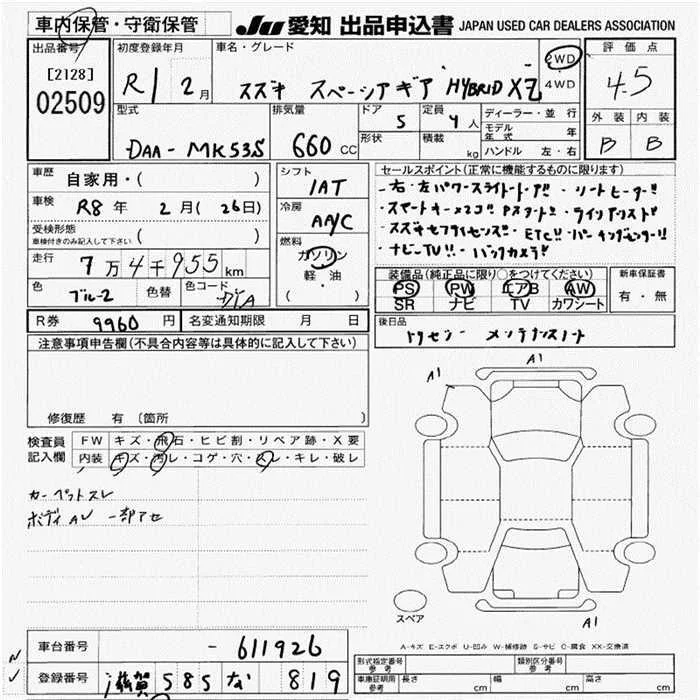 車内保管・守衛保管
JU 愛知 出品申込書 JAPAN USED CAR DEALERS ASSOCIATION
出品番号 [2128] 02509
初度登録年月 R1 2月
車名・グレード スズキ スペーシアギア HYBRID XZ
2WD 4WD
評価点 4.5
型式 DAA-MK53S
排気量 660 CC
ドア 5 定員 4人
形状 積載 kg
ディーラー・並行
モデル年式 年
ハンドル 左・右
外装 内装
B B
車歴 自家用・( )
車検 R8年 2月(26日)
受検形態 車検付きのみ記入して下さい ( )
走行 7万4千955km
色 ブルー2 色替 色コード
シフト IAT
冷房 AA/C
燃料 ガソリン 軽・油 ( )
セールスポイント(正常に機能するものに限ります)
・右・左パワースライドドア!!・シートヒーター!!
ETC!!・パーキングセンサー!!
・ナビーTV!!・バックカメラ!!
装備品(純正品に限り○をつけてください)
PS PW エアB AW
SR ナビ TV カワシート
新車保証書 有・無
R券 9960円 名変通知期限 月 日
後日品 トリセツ メンテナンスノート
注意事項申告欄(不具合内容等は具体的に記入して下さい)
修復歴 有 〔箇所 〕
検査員記入欄 FW キズ・飛石・ヒビ割・リペア跡・X要
内装 キズ・汚レ・コゲ・穴・スレ・キレ・破レ
カーペットスレ
A1 A1
A1
スペア
A-キズ E-エクボ U-凹み W-補修跡 S-サビ C-腐食 XX-交換済
車台番号 -611926
登録番号 滋賀 585 な 819
形式指定番号 参考 類別区分番号 参考
車庫証明用 参考 長さ cm 幅 cm 高さ cm